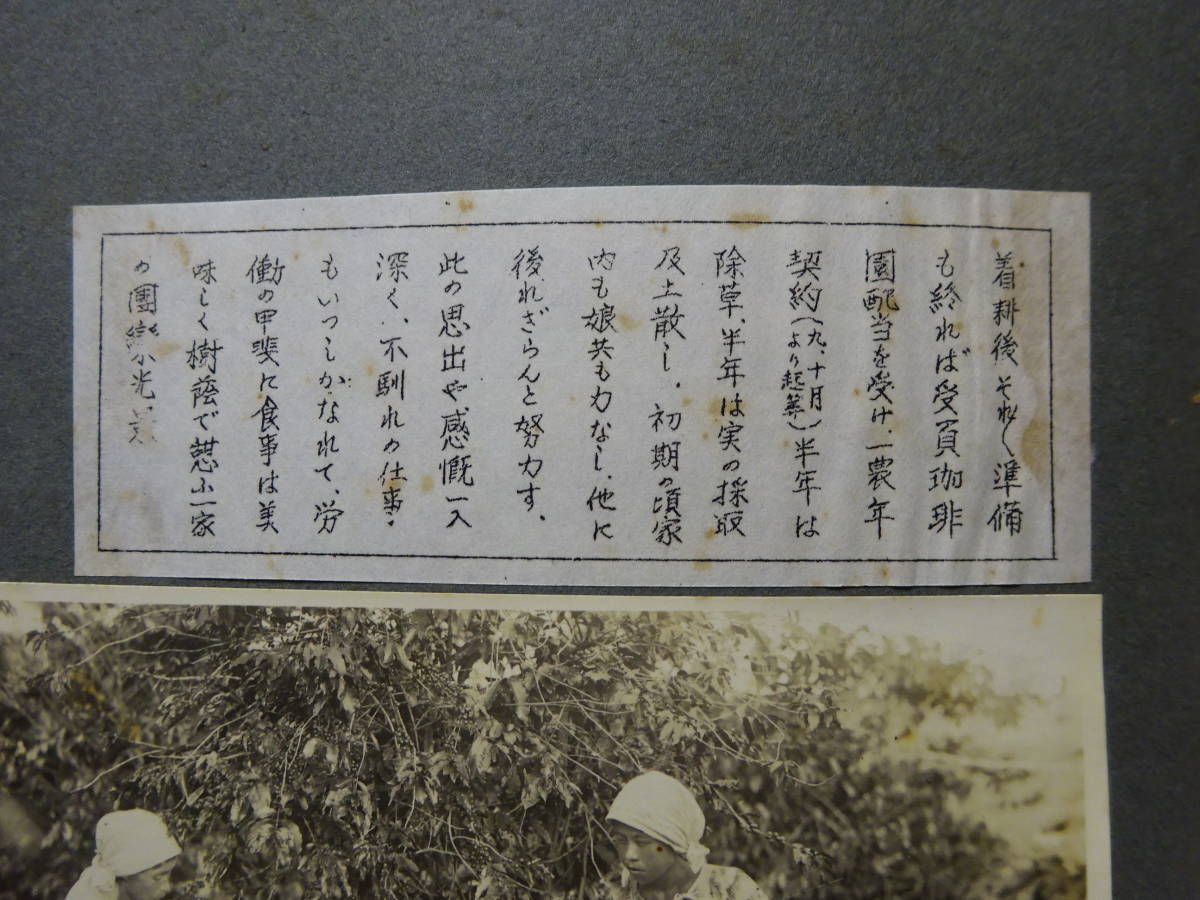 着耕後それ〳〵準備
も終れば受負珈琲
園配当を受け、一農年
契約(九、十月より起算)半年は
除草、半年は実の採取
及上散し。初期の頃家
内も娘共も力なし、他に
後れざらんと努力す、
此の思出や感慨一入
深く、不馴れの仕事・
もいつしかなれて、労
働の甲斐に食事は美
味しく樹蔭で憩ふ一家
の團欒小光景